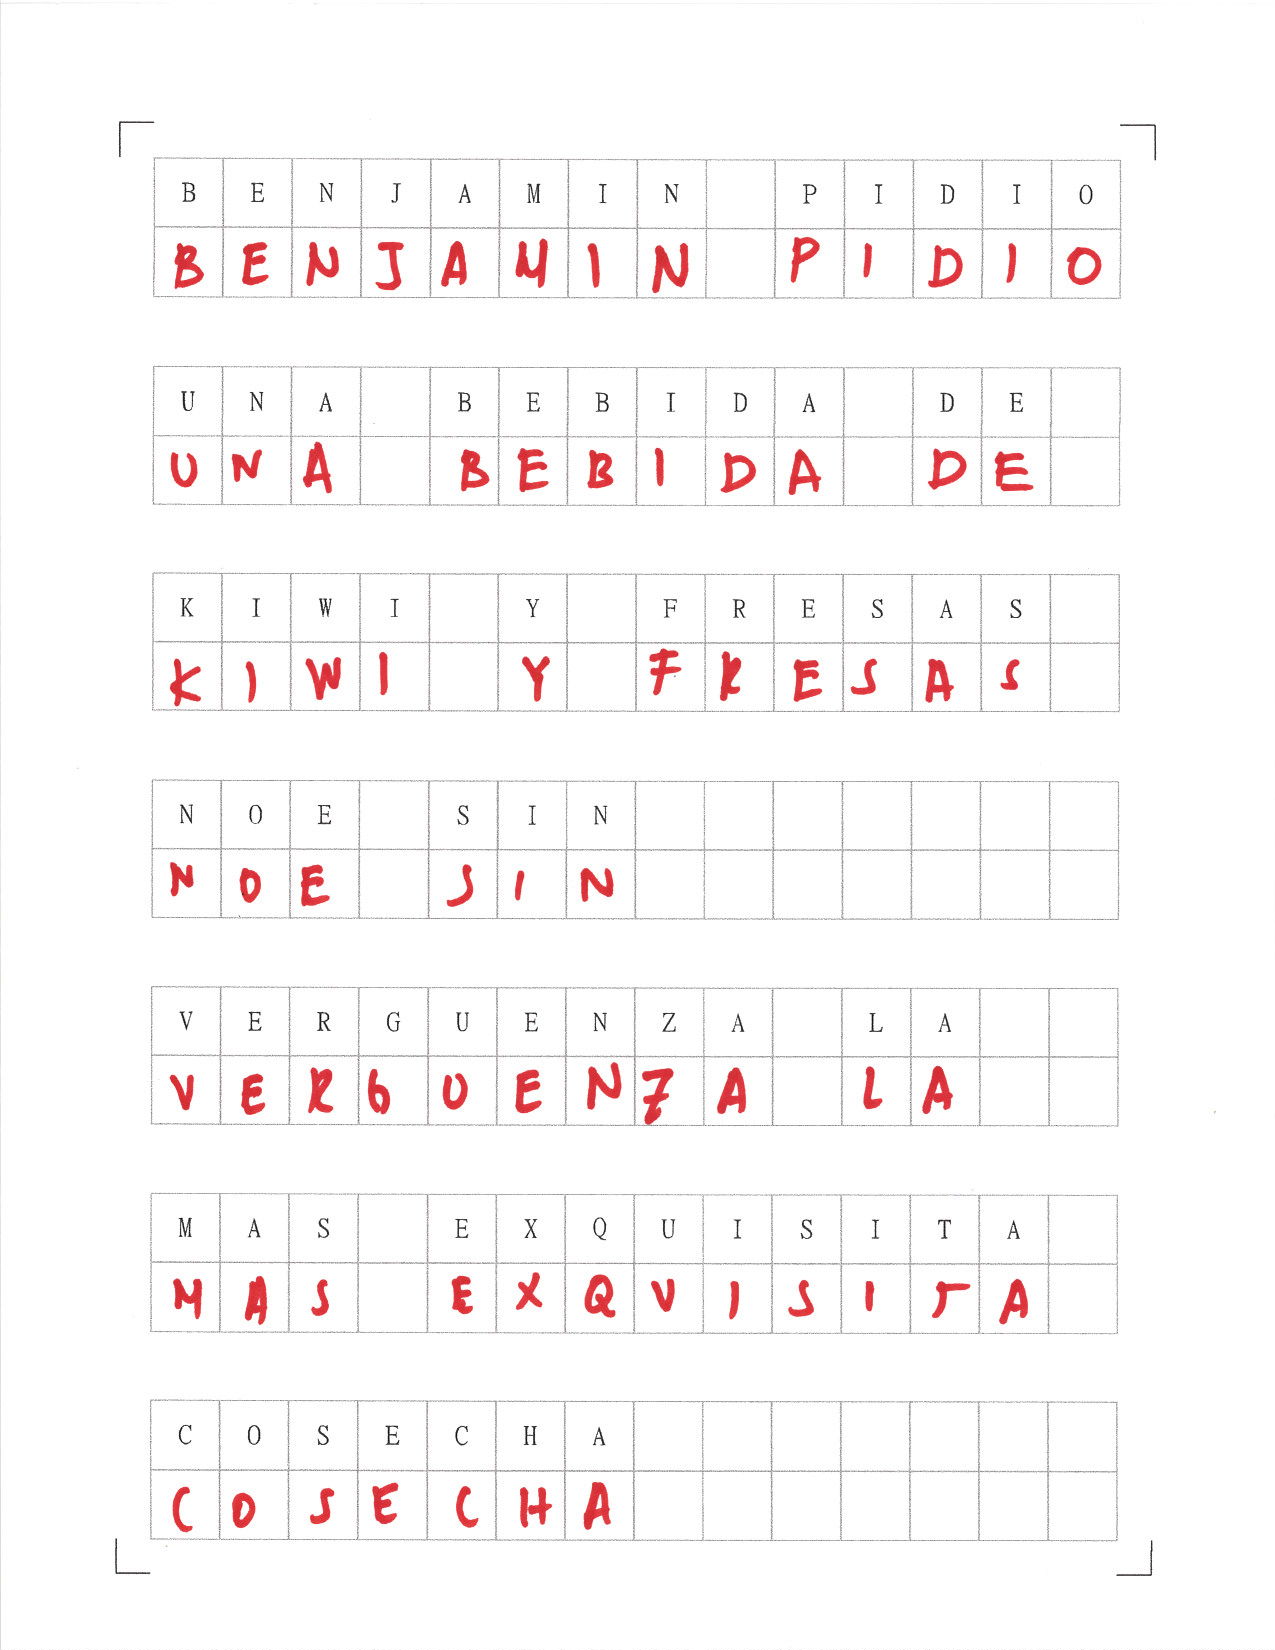 BENJAMIN PIDIO
BENJAMIN PIDIO
UNA BEBIDA DE
UNA BEBIDA DE
KIWI Y FRESAS
KIWI Y FRESAS
NOE SIN
NOE SIN
VERGUENZA LA
VERGUENZA LA
MAS EXQUISITA
MAS EXQUISITA
COSECHA
COSECHA